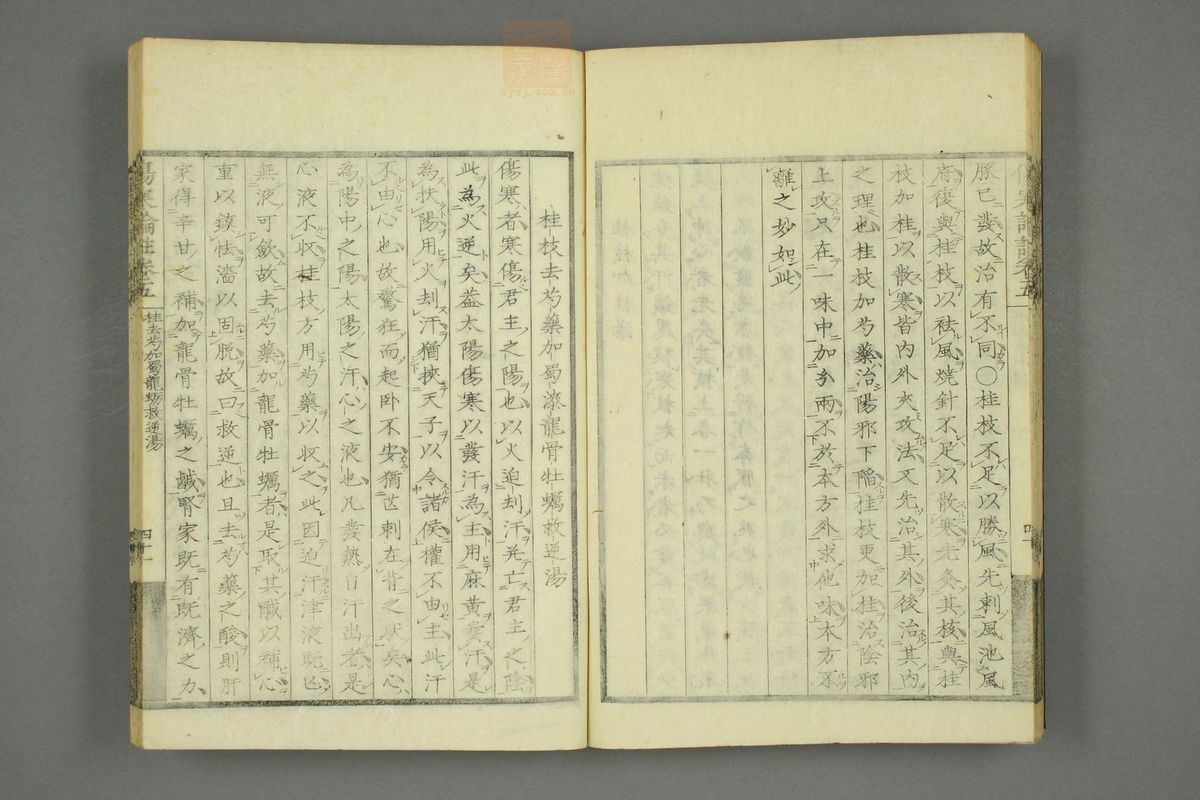 豚已發故治有不同○桂枝不足以勝風先刺風池風
府復與桂枝以袪風燒針不足以散寒先灸其核與桂
枝加桂以散寒皆內外夾攻法又先治其外後治其內
之理也桂枝加芍藥治陽邪下陷桂枝更加桂治陰邪
上攻只在一味中加分兩不於本方外求他味本方不
離之妙如此
桂枝去芍藥加蜀漆龍骨牡蠣救逆湯
傷寒者寒傷君主之陽也以火迫刦汗亡君主之陰
此為火逆矣蓋太陽傷寒以發汗為主用麻黃發汗是
為扶陽用火刦汗猶挾天子以令諸侯權不由主此汗
不由心也故驚狂而起卧不安猶芒刺在背之狀矣心
為陽中之陽太陽之汗心之液也凡發熱自汗出者是
心液不收桂枝方用芍藥以收之此因迫汗津液既亡
無液可歛故去芍藥加龍骨牡蠣者是取其鹹以補心
重以鎮怯濇以固脫故曰救逆也且去芍藥之酸則肝
家得辛甘之補加龍骨牡蠣之鹹腎家既有既濟之力
傷寒論註卷五
桂去芍加蜀龍蛎救逆湯
四十一